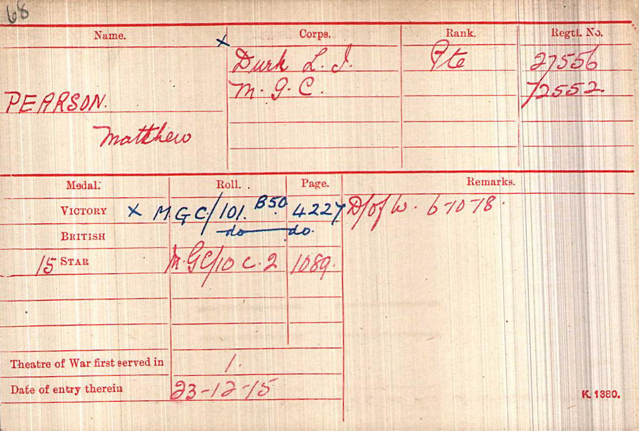 68
Name. Corps. Rank. Regtl. No.
x Durh L. I. Pte 27556
PEARSON. M. G. C. 72552
Matthew
Medal. Roll. Page. Remarks.
VICTORY x MGC/101. B50. 4227 D/of W.
BRITISH do do.
15 STAR M.GC/10 C.2 1089.
Theatre of War first served in 1.
Date of entry therein 23-12-15
K. 1380.